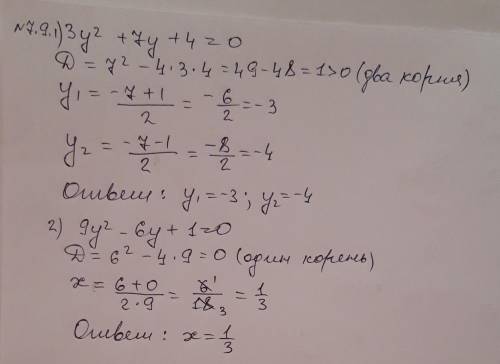 №7.9.1) 3y² + 7y + 4 = 0
D = 7² - 4·3·4 = 49 - 48 = 1 > 0 (два корня)
y₁ = (-7+1)/2 = -6/2 = -3
y₂ = (-7-1)/2 = -8/2 = -4
Ответ: y₁ = -3; y₂ = -4
2) 9y² - 6y + 1 = 0
D = 6² - 4·9 = 0 (один корень)
x = (6+0)/(2·9) = 6¹/18₃ = 1/3
Ответ: x = 1/3